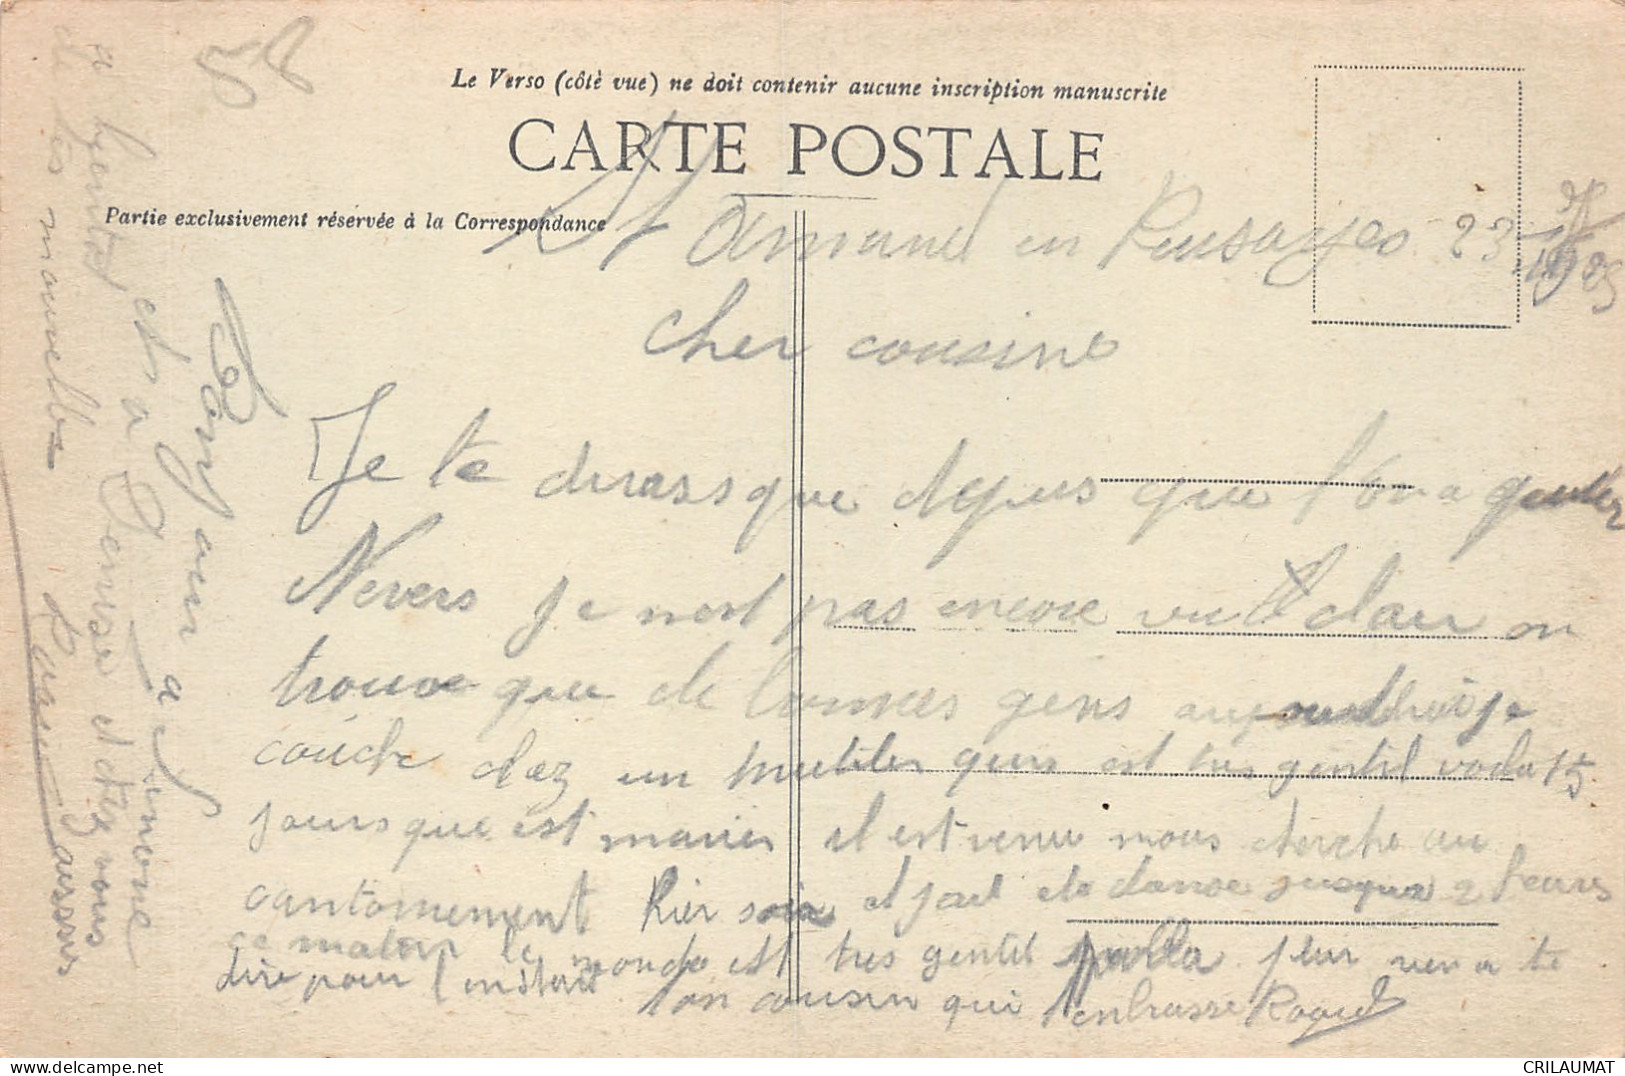 Le Verso (côté vue) ne doit contenir aucune inscription manuscrite
CARTE POSTALE
Partie exclusivement réservée à la Correspondance
St Amand en Puisayes 23
cher cousine
Je te dirass que depus que l'on a quuter
Nevers je nest pas encore vu clair on
trouve que de bonnes gens aujourdhuis je
couche chez un mutiler quis est tres gentil voila 15
jours que est marier il est venu nous cherche au
cantonement hier soir et jai ete danse jusqua 2 heures
ce maten le monde est tres gentil plus rien a te
dire pour l'instant ton cousin qui t'enbrasse
Bonjour a Simone
et a Denise et chez vous
a bientot
de tes nouvelles
aussus
CRILAUMAT